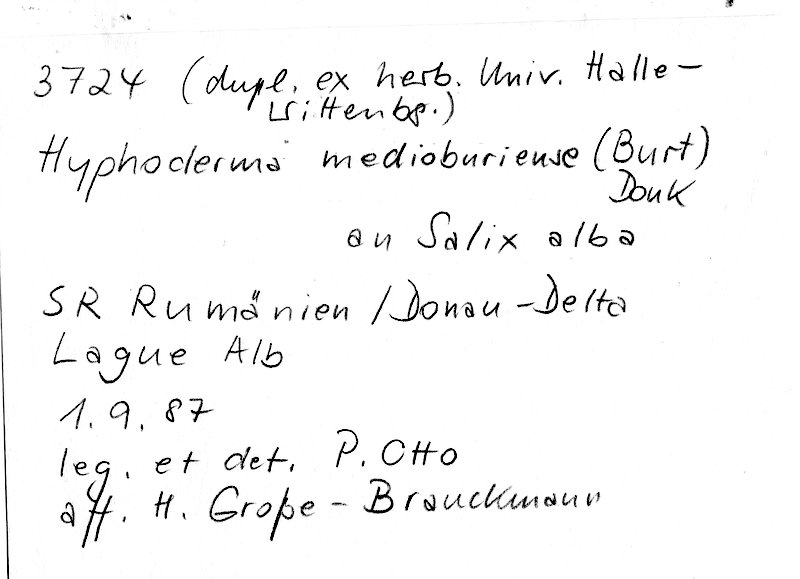 3724 (dupl. ex herb. Univ. Halle-
Wittenbg.)
Hyphoderma medioburiense (Burt)
Donk
an Salix alba
SR Rumänien / Donau-Delta
Lague Alb
1. 9. 87
leg. et det. P. Otto
aff. H. Große-Brauckmann